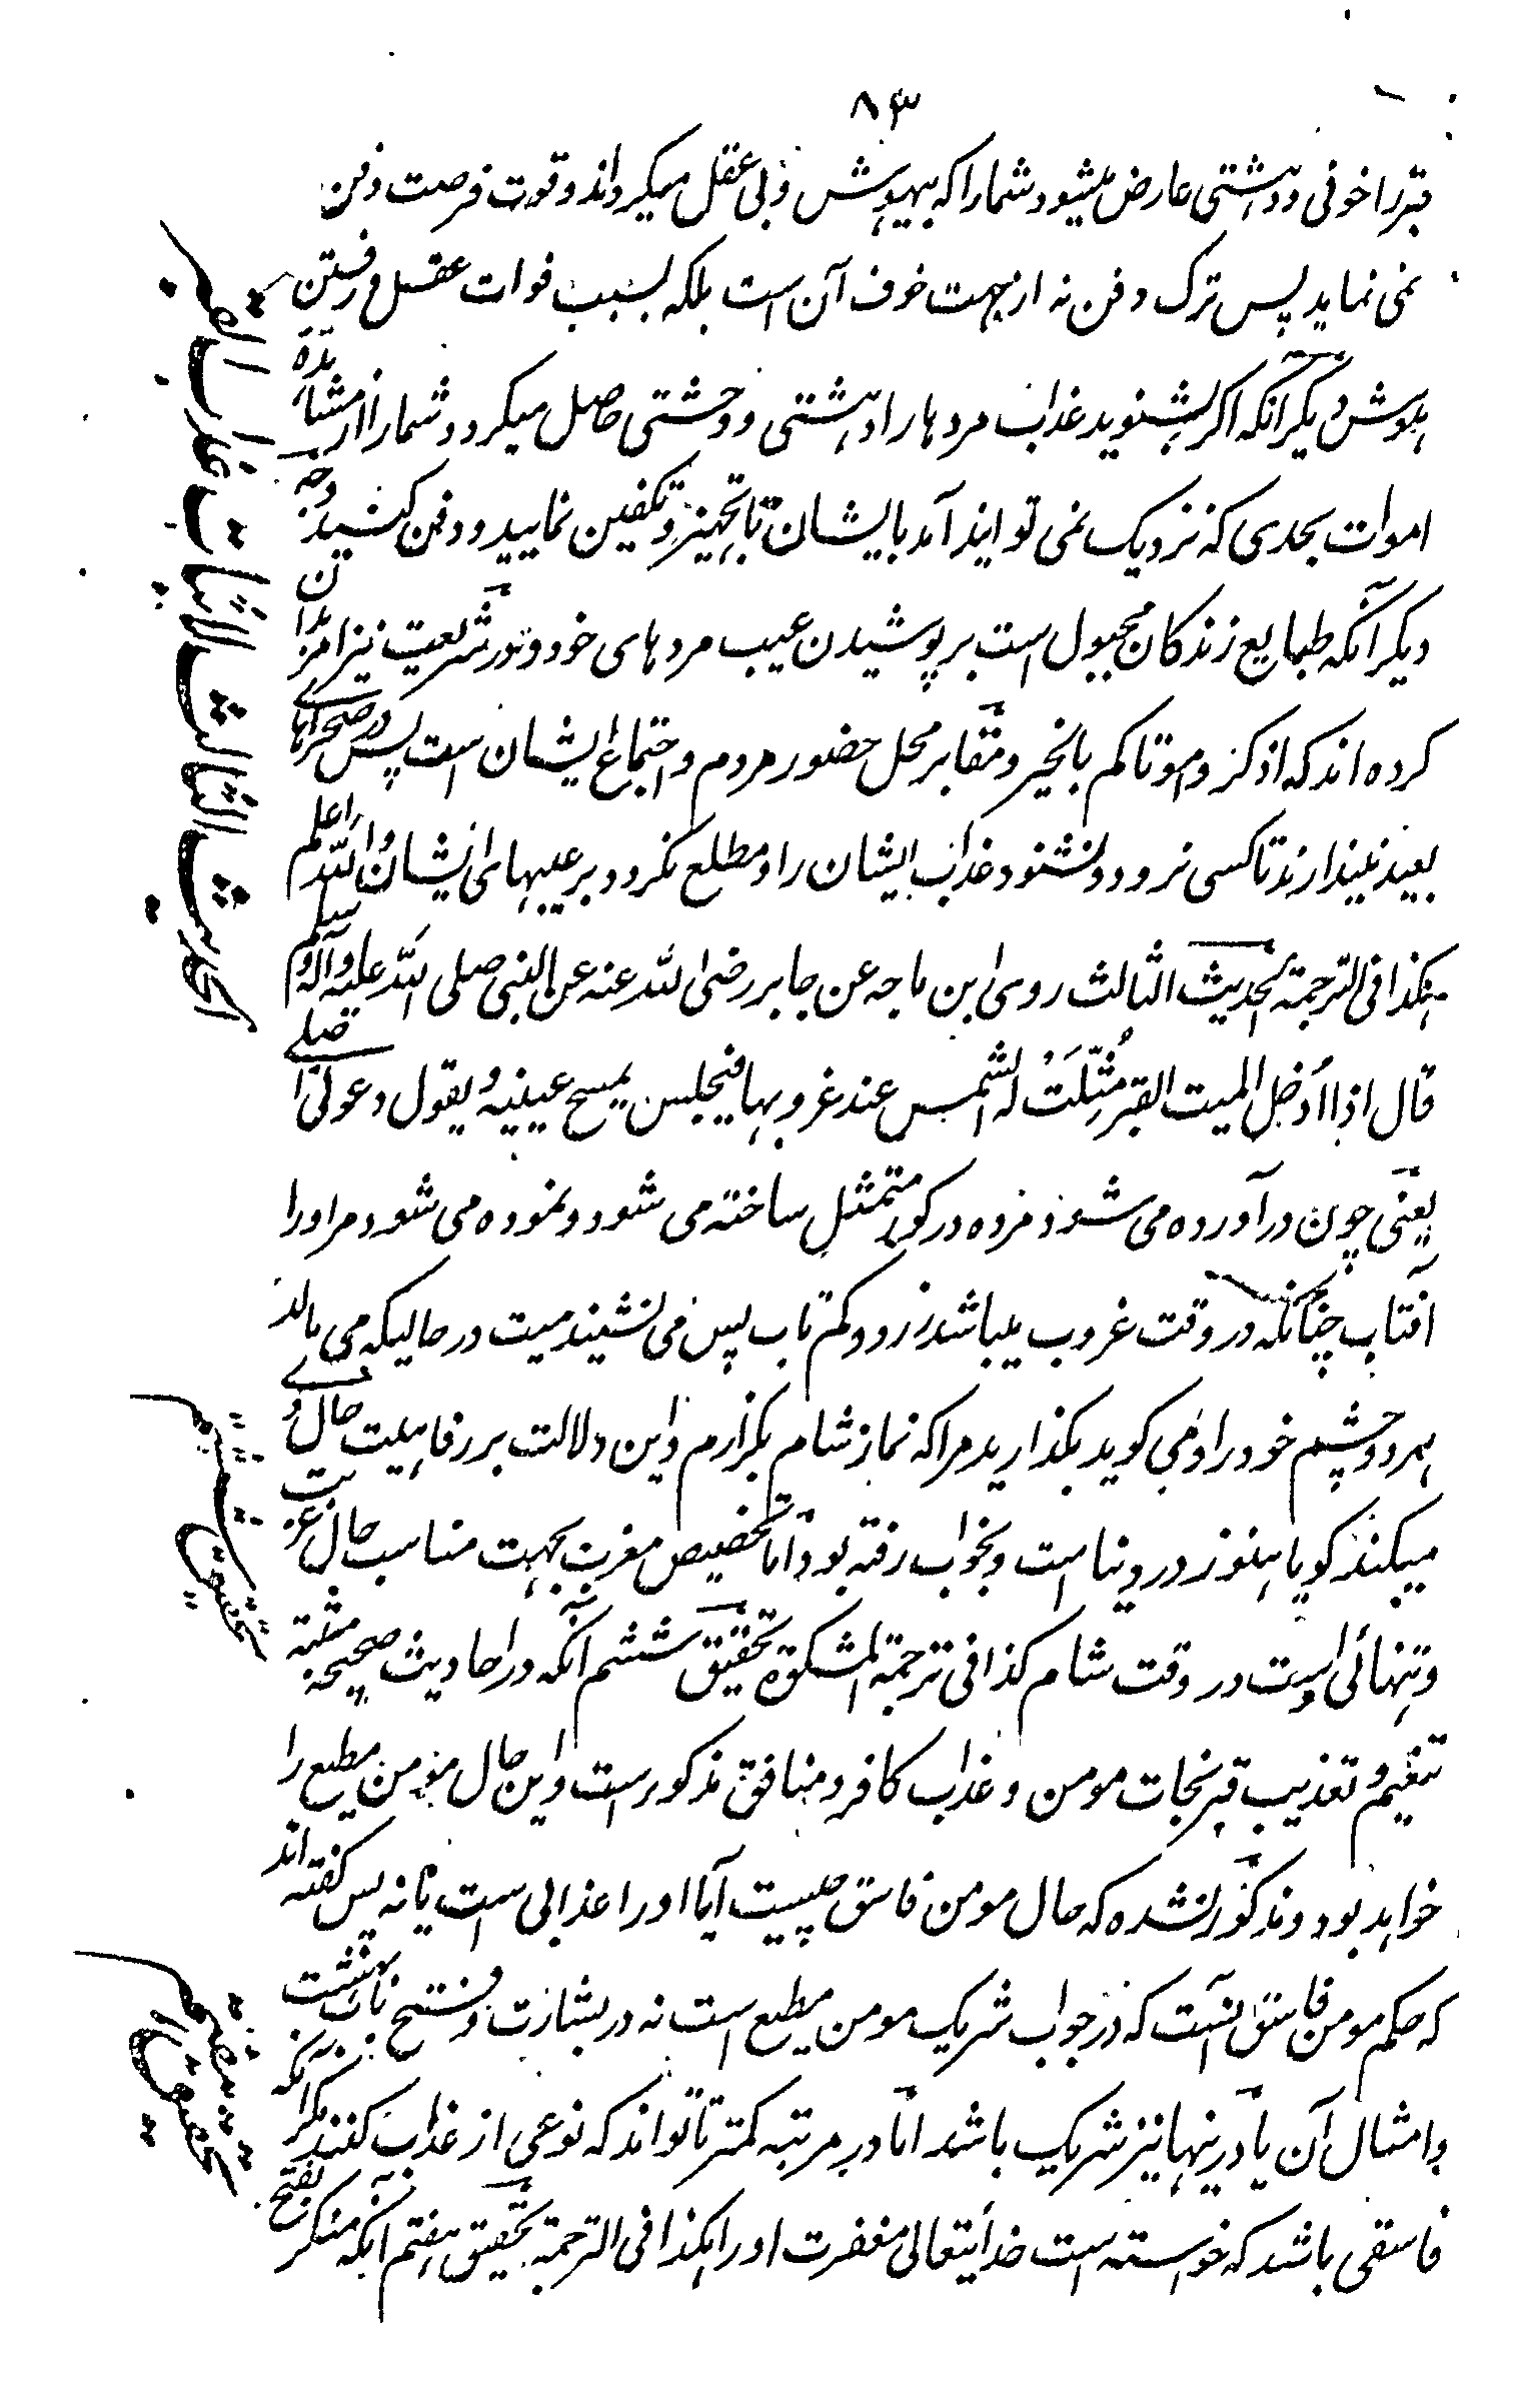 ۸۳
قبر را خوفی و دہشتی عارض میشود شما را کہ بیہوش و بی عقل میگرداند و قوت فرصت دفن
نمی نماید پس ترک دفن نہ از جہت خوف آن است بلکہ بسبب فوات عقل و رفتن
ہوش و دیگر آنکہ اگر بشنوید عذاب مردہا را دہشتی و وحشتی حاصل میگردد شما را از مشاہدہ
اموات بحدی کہ نزدیک نمی توانید آمد بایشان تا تجہیز و تکفین نمایید و دفن کنید وجہ
دیگر آنکہ طبایع زندگان مجبول است بر پوشیدن عیب مردہای خود و در شریعت نیز امر بدان
کردہ اند کہ اذکروا موتاکم بالخیر و مقابر محل حضور مردم و اجتماع ایشان است پس در صحراہای
بعید بیندازند تا کسی نرود و نشنود عذاب ایشان را و مطلع نگردد بر عیبہای ایشان واللہ اعلم
ہکذا فی الترجمۃ الحدیث الثالث روی ابن ماجہ عن جابر رضی اللہ عنہ عن النبی صلی اللہ علیہ وآلہ وسلم
قال اذا اُدخل المیت القبر مُثِّلَتْ لہ الشمس عند غروبہا فیجلس یمسح عینیہ و یقول دعونی اصلی
یعنی چون در آوردہ می شود مردہ در گور متمثل ساختہ می شود و نمودہ می شود مر او را
آفتاب چنانکہ در وقت غروب میباشد زرد و کم تاب پس می نشیند میت در حالیکہ می مالد
ہر دو چشم خود را و می گوید بگذارید مرا کہ نماز شام بگزارم و این دلالت بر رفاہیت حال وی
میکند گویا ہنوز در دنیا است و بخواب رفتہ بود و اما تخصیص مغرب بجہت مناسب حال غربت
و تنہائی اوست در وقت شام کذا فی ترجمۃ المشکوۃ تحقیق ششم آنکہ در احادیث صحیحہ مثبتہ
تنعیم و تعذیب قبر نجات مومن و عذاب کافر و منافق مذکور است و این حال مومن مطیع را
خواہد بود و مذکور نشدہ کہ حال مومن فاسق چیست آیا او را عذابی است یا نہ پس گفتہ اند
کہ حکم مومن فاسق آنست کہ در جواب شریک مومن مطیع است نہ در بشارت و فتح باب بہشت
و امثال آن یا درینہا نیز شریک باشد اما در مرتبہ کمتر تا تواند کہ نوعی از عذاب کنند مگر آنکہ
فاسقی باشد کہ خواستہ است خدایتعالی مغفرت او را ہکذا فی الترجمۃ تحقیق ہفتم آنکہ منکر بفتح
الحدیث الثالث لاثبات عذاب القبر
تحقیق ششم
تحقیق ہفتم